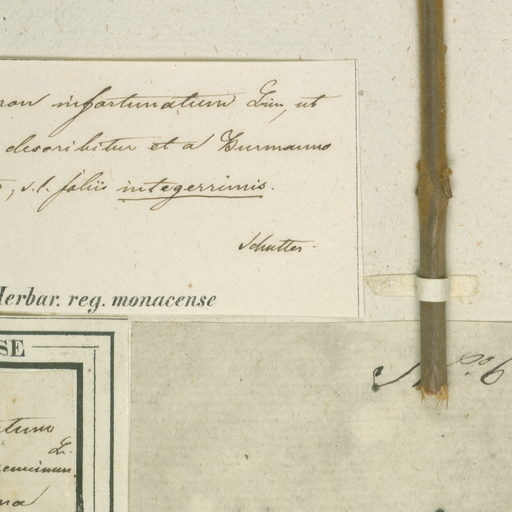 ron infortunatum Lin, ut
describitur et a Burmanno
, s.l. foliis integerrimis.
Schultes.
Herbar. reg. monacense
SE
No. 6
atum
L.